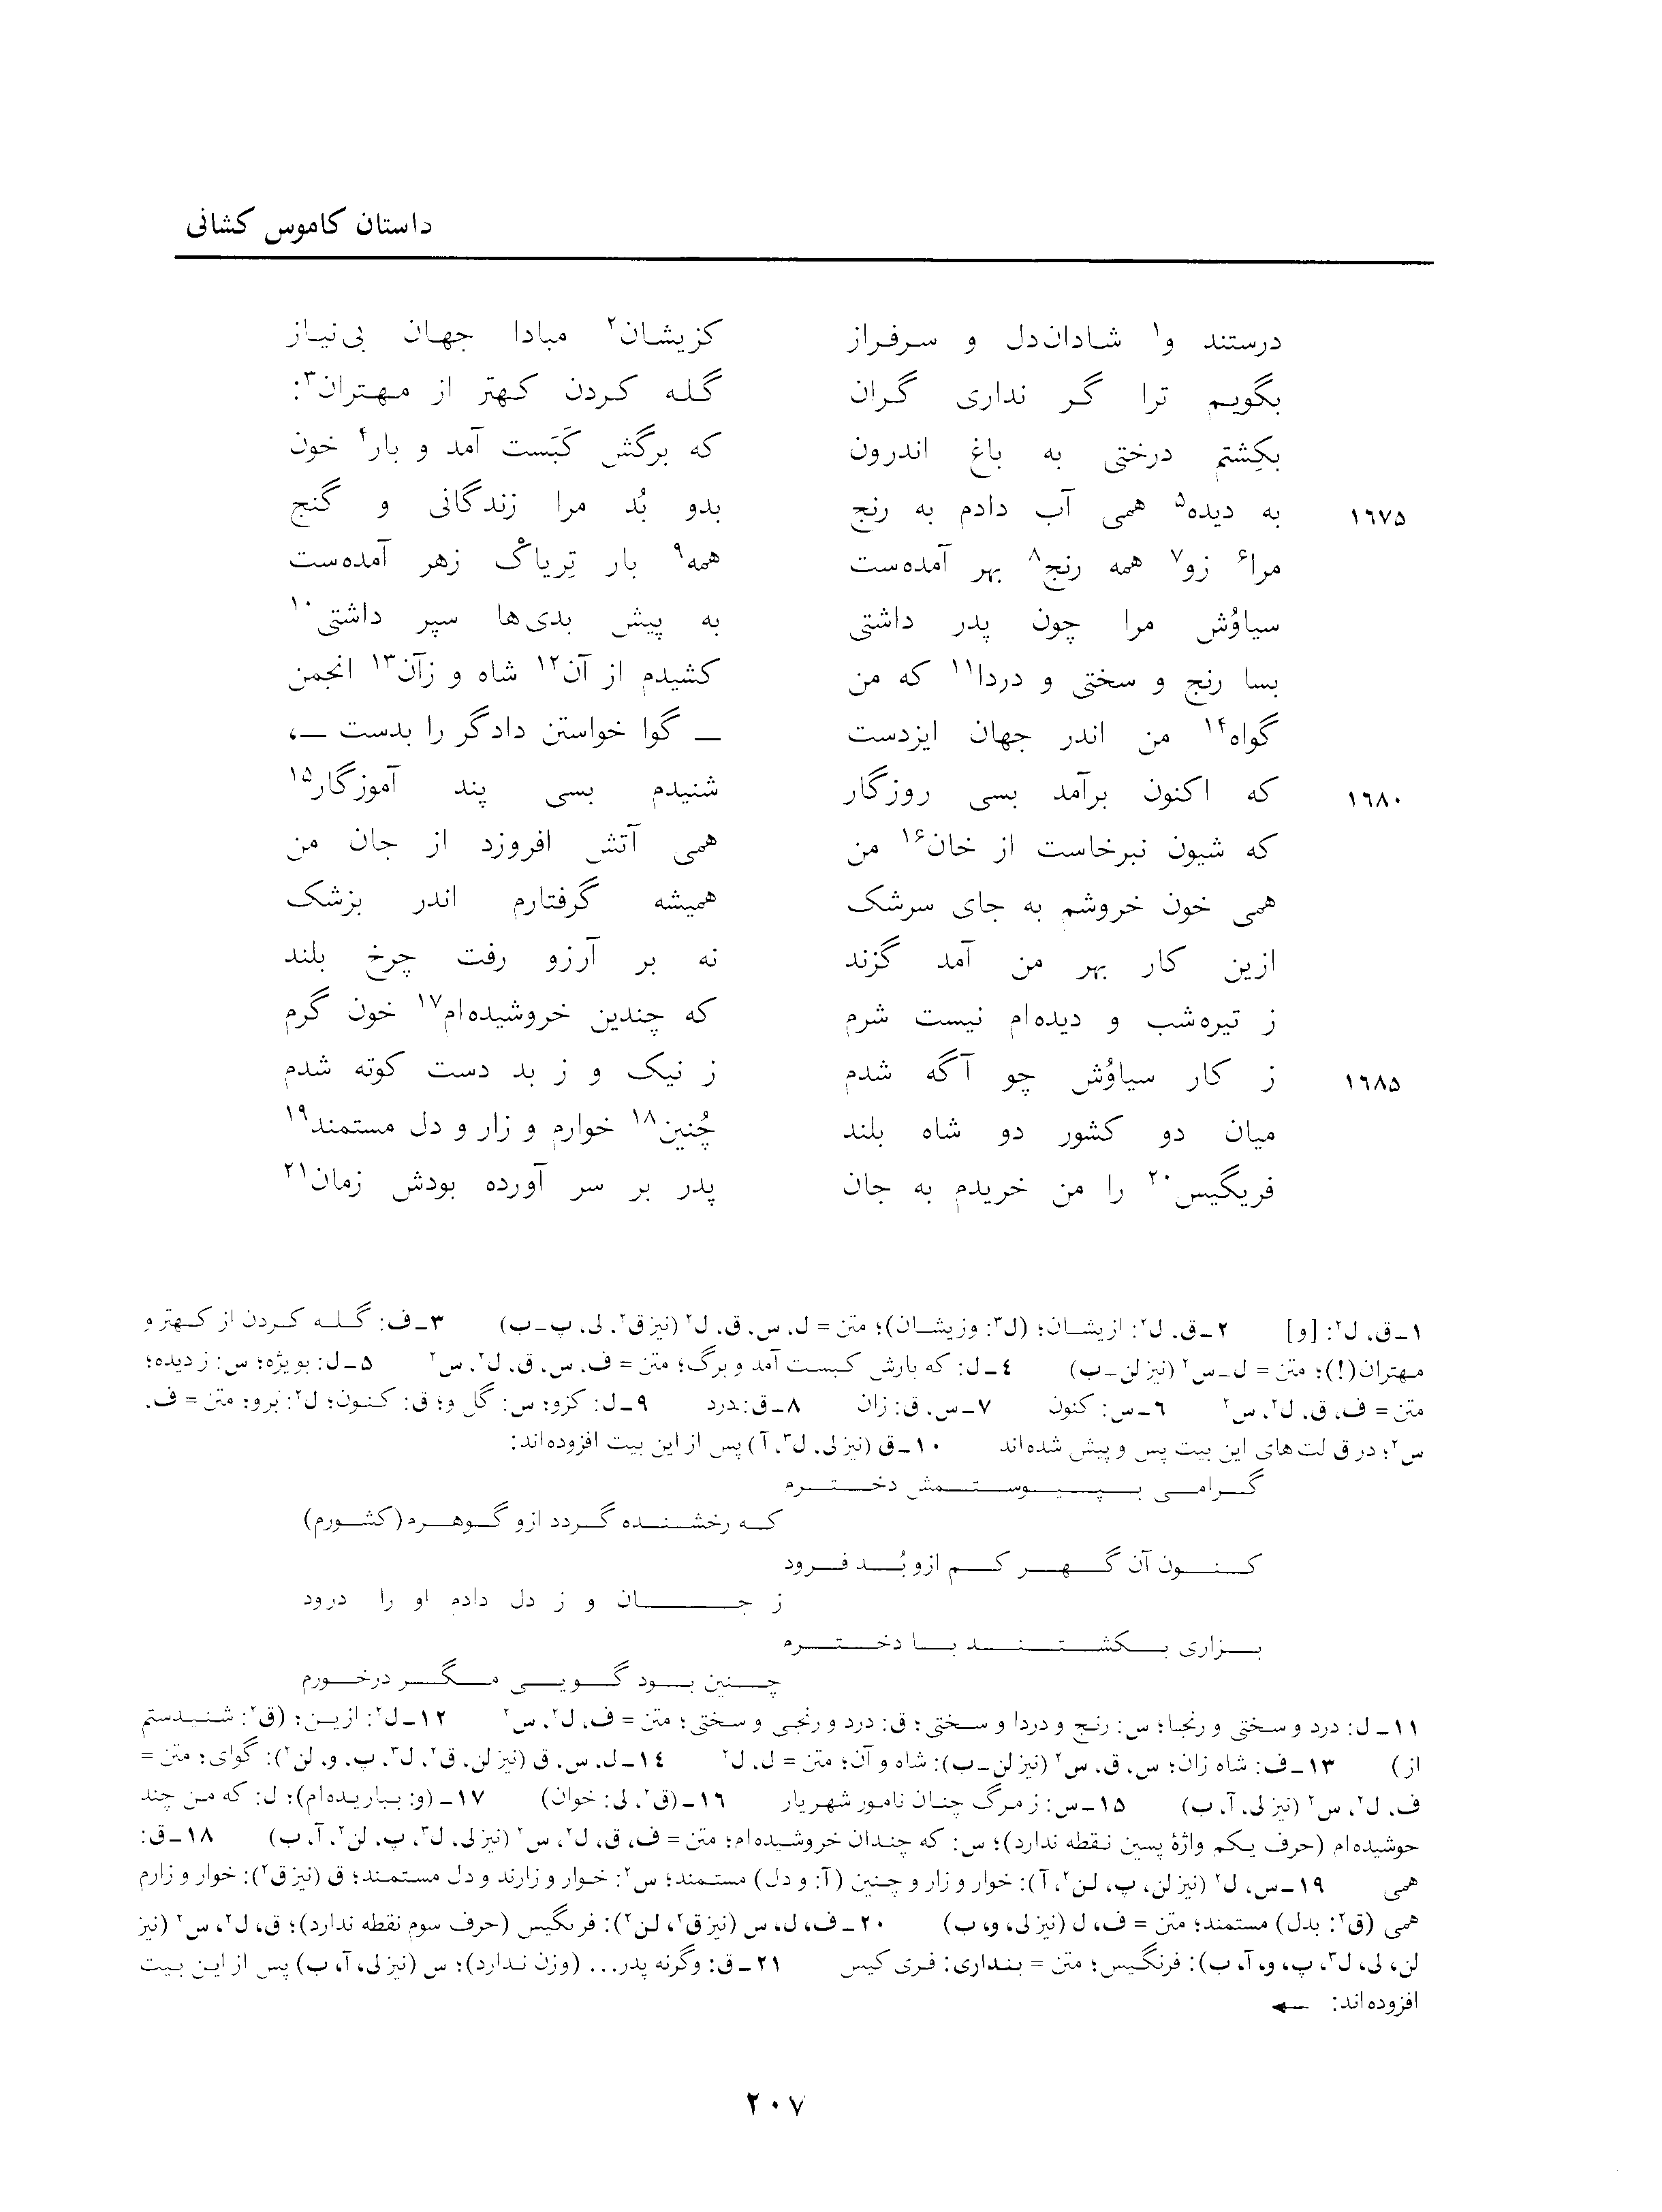 داستان کاموس کشانی
درستند و۱ شادان‌دل و سرفراز کزیشان۲ مبادا جهان بی‌نیاز
بگویم ترا گر نداری گران گله کردن کهتر از مهتران۳:
بکِشتم درختی به باغ اندرون که برگش کَبَست آمد و بار۴ خون
۱۶۷۵ به دیده۵ همی آب دادم به رنج بدو بُد مرا زندگانی و گنج
مرا۶ زو۷ همه رنج۸ بهر آمده‌ست همه۹ بار تِریاکْ زهر آمده‌ست
سیاوُش مرا چون پدر داشتی به پیش بدی‌ها سپر داشتی۱۰
بسا رنج و سختی و دردا۱۱ که من کشیدم از آن۱۲ شاه و زآن۱۳ انجمن
گواه۱۴ من اندر جهان ایزدست ــ گوا خواستن دادگر را بدست ــ،
۱۶۸۰ که اکنون برآمد بسی روزگار شنیدم بسی پند آموزگار۱۵
که شیون نبرخاست از خان۱۶ من همی آتش افروزد از جان من
همی خون خروشم به جای سرشک همیشه گرفتارم اندر بزشک
ازین کار بهر من آمد گزند نه بر آرزو رفت چرخ بلند
ز تیره‌شب و دیده‌ام نیست شرم که چندین خروشیده‌ام۱۷ خون گرم
۱۶۸۵ ز کار سیاوُش چو آگه شدم ز نیک و ز بد دست کوته شدم
میان دو کشور دو شاه بلند چُنین۱۸ خوارم و زار و دل مستمند۱۹
فریگیس۲۰ را من خریدم به جان پدر بر سر آورده بودش زمان۲۱
۱ــ ق، ل۲: [و] ۲ــ ق، ل۲: ازیشان؛ (ل۳: وزیشان)؛ متن = ل، س، ق، ل۲ (نیز ق۲، لی، پ ــ ب) ۳ــ ف: گله کردن از کهتر و
مهتران (!)؛ متن = ل ــ س۲ (نیز لن ــ ب) ۴ــ ل: که بارش کبست آمد و برگ؛ متن = ف، س، ق، ل۲، س۲ ۵ــ ل: بویژه؛ س: ز دیده؛
متن = ف، ق، ل۲، س۲ ۶ــ س: کنون ۷ــ س، ق: زان ۸ــ ق: درد ۹ــ ل: کزو؛ س: گل و؛ ق: کنون؛ ل۲: برو؛ متن = ف،
س۲؛ در ق لت‌های این بیت پس و پیش شده‌اند ۱۰ــ ق (نیز لی، ل۳، آ) پس از این بیت افزوده‌اند:
گرامی بپیوستمش دخترم
که رخشنده گردد ازو گوهرم (کشورم)
کنون آن گهر کم ازو بُد فرود
ز جان و ز دل دادم او را درود
بزاری بکشتند با دخترم
چنین بود گویی مگر درخورم
۱۱ــ ل: درد و سختی و رنجا؛ س: رنج و دردا و سختی؛ ق: درد و رنجی و سختی؛ متن = ف، ل۲، س۲ ۱۲ــ ل۲: ازین؛ (ق۲: شنیدستم
از) ۱۳ــ ف: شاه زان؛ س، ق، س۲ (نیز لن ــ ب): شاه و آن؛ متن = ل، ل۲ ۱۴ــ ل، س، ق (نیز لن، ق۲، ل۳، پ، و، لن۲): گوای؛ متن =
ف، ل۲، س۲ (نیز لی، آ، ب) ۱۵ــ س: ز مرگ چنان نامور شهریار ۱۶ــ (ق۲، لی: خوان) ۱۷ــ (و: بباریده‌ام)؛ ل: که من چند
حوشیده‌ام (حرف یکم واژهٔ پسین نقطه ندارد)؛ س: که چندان خروشیده‌ام؛ متن = ف، ق، ل۲، س۲ (نیز لی، ل۳، پ، لن۲، آ، ب) ۱۸ــ ق:
همی ۱۹ــ س، ل۲ (نیز لن، پ، لن۲، آ): خوار و زار و چنین (آ: و دل) مستمند؛ س۲: خوار و زارند و دل مستمند؛ ق (نیز ق۲): خوار و زارم
همی (ق۲: بدل) مستمند؛ متن = ف، ل (نیز لی، و، ب) ۲۰ــ ف، ل، س (نیز ق۲، لن۲): فرىگیس (حرف سوم نقطه ندارد)؛ ق، ل۲، س۲ (نیز
لن، لی، ل۳، پ، و، آ، ب): فرنگیس؛ متن = بنداری: فری کیس ۲۱ــ ق: وگرنه پدر... (وزن ندارد)؛ س (نیز لی، آ، ب) پس از این بیت
افزوده‌اند: ←
۲۰۷